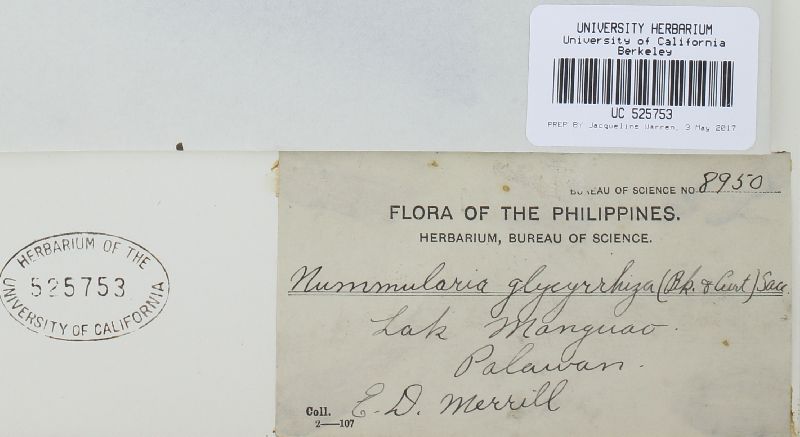 UNIVERSITY HERBARIUM
University of California
Berkeley
UC 525753
PREP BY Jacqueline Warren, 3 May 2017
HERBARIUM OF THE
525753
UNIVERSITY OF CALIFORNIA
BUREAU OF SCIENCE NO. 8950
FLORA OF THE PHILIPPINES.
HERBARIUM, BUREAU OF SCIENCE.
Nummularia glycyrrhiza (Bk. & Curt) Sacc
Lak Manguao.
Palawan.
Coll. E. D. Merrill
2—107